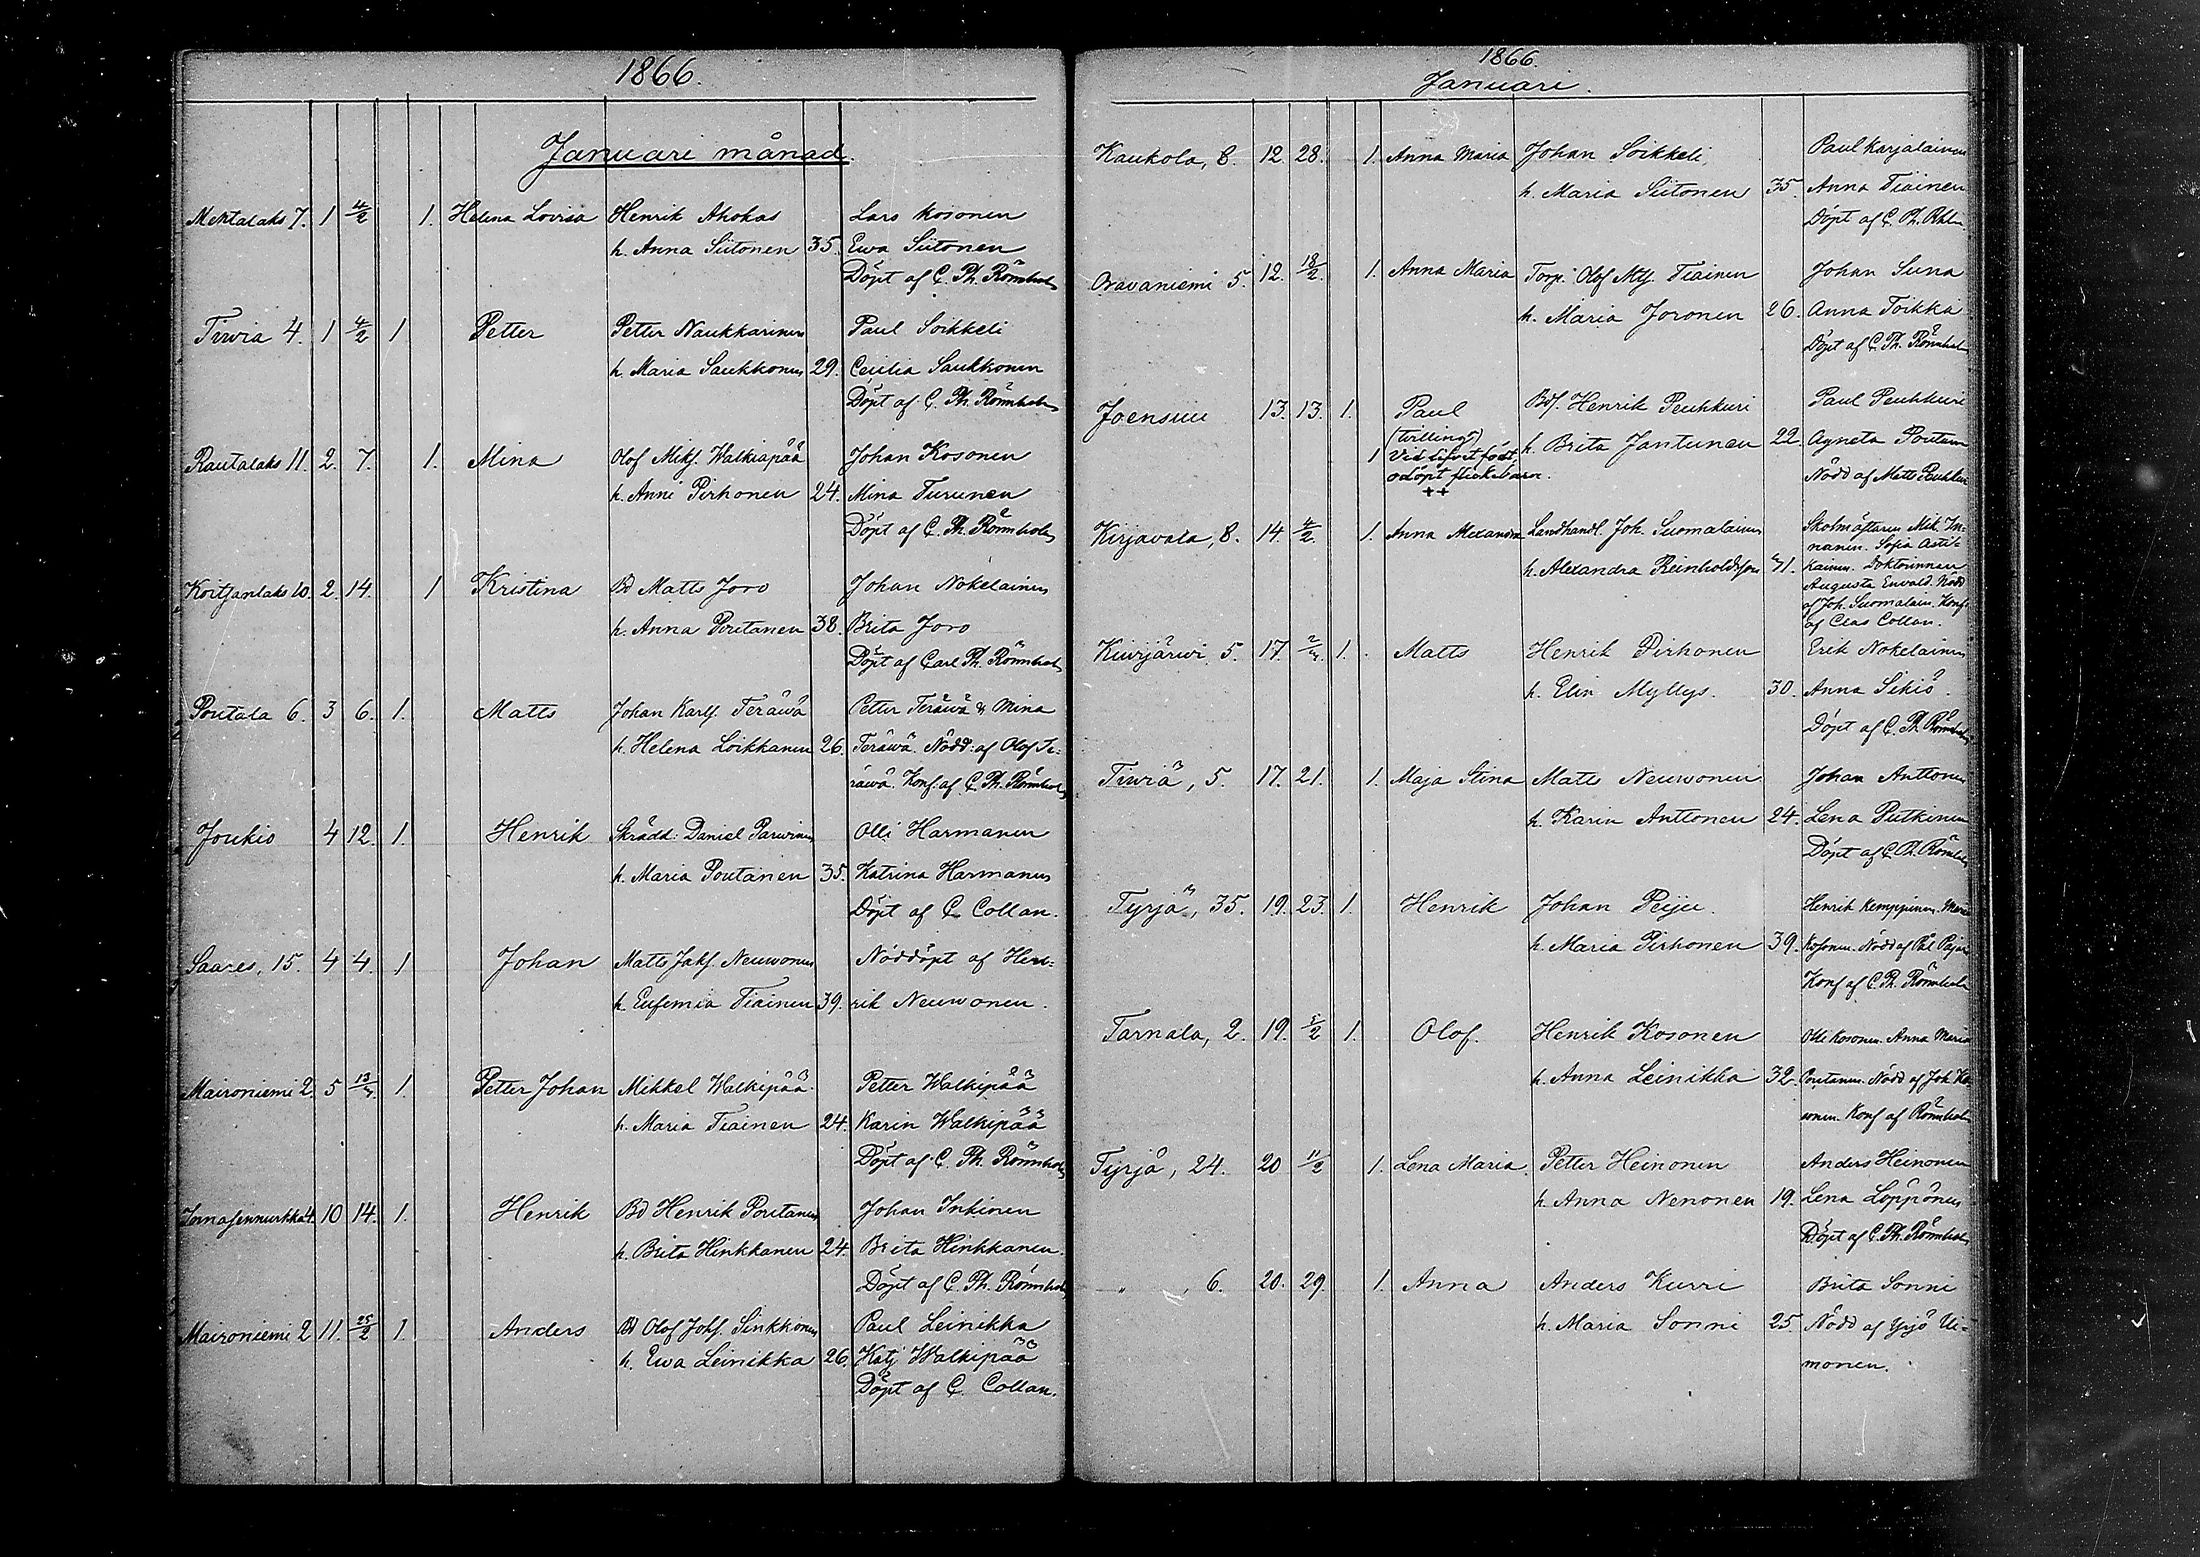 1866.
Januari månad.
Mektalaks 7. 1 4/2 1. Helena Lovisa Henrik Ahokas Lars Kosonen
h. Anna Siitonen 35. Ewa Siitonen
Döpt af C. Ph. Römholm
Tiwia 4. 1 4/2 1 Petter Petter Naukkarinen Paul Soikkeli
h. Maria Saukkonen 29. Cecilia Saukkonen
Döpt af C. Ph. Römholm
Rautalaks 11. 2. 7. 1. Mina Olof Mikf. Walkiapää Johan Kosonen
h. Anni Pirhonen 24. Mina Turunen
Döpt af C. Ph. Römholm
Koitsanlaks 10. 2. 14. 1 Kristina Bd Matts Joro Johan Nokelainen
h. Anna Poutanen 38. Brita Joro
Döpt af Carl Ph. Römholm
Poutala 6. 3 6. 1. Matts Johan Karlf. Teräwä Petter Teräwä & Mina
h. Helena Loikkanen 26. Teräwä. Nödd: af Olof Te-
räwä. Konf. af C. Ph. Römholm
Joukio 4 12. 1. Henrik Skrädd: Daniel Parwinen Olli Harmanen
h. Maria Poutanen 35. Katrina Harmanen
Döpt af C. Collan.
Saares, 15. 4 4. 1 Johan Matts Jakf. Neuwonen Nöddöpt af Hen-
h. Eufemia Tiainen 39. rik Neuwonen.
Maironiemi 2. 5 13/3 1. Petter Johan Mikkel Walkipää Petter Walkipää
h. Maria Tiainen 24. Karin Walkipää
Döpt af C. Ph. Römholm
4. 10 14. 1. Henrik Bd Henrik Poutanen Johan Inkinen
h. Brita Hinkkanen 24. Brita Hinkkanen.
Döpt af C. Ph. Römholm
Maironiemi 2 11. 25/2 1. Anders Bd Olof Johf. Sinkkonen Paul Leinikka
h. Ewa Leinikka 26. Katj Walkipää
Döpt af C. Collan.
1866.
Januari.
Kaukola, 8. 12. 28. 1. Anna Maria Johan Soikkeli Paul Karjalainen
h. Maria Siitonen 35. Anna Tiainen
Döpt af C. Ph. Rhlm
Oravaniemi 5. 12. 18/2. 1. Anna Maria Torp. Olof Mtf. Tiainen Johan Suna
h. Maria Joronen 26. Anna Toikka
Döpt af C. Ph. Römholm
Joensuu 13. 13. 1. Paul Bdf. Henrik Peuhkuri Paul Peuhkuri
(tvilling) h. Brita Jantunen 22. Agneta Poutan
1 Vid lifvet födt Nödd af Matts Peuhkuri
odöpt flickebarn.
++
Kirjavala, 8. 14. 4/2. 1. Anna Alexandra Landhandl. Joh. Suomalainen Skolmästaren Mik. In-
nanen. Sofia Asti-
h. Alexandra Reinholdsson 41. kainen. Doktorinnan
Augusta Envald. Nödd
af Joh. Suomalain. Konf.
af Clas Collan.
Kiurjärwi, 5. 17. 2/3. 1. Matts Henrik Pirhonen Erik Nokelainen
h. Elin Myllys. 30. Anna Sikiö.
Döpt af C. Ph Römholm
Tiwiä, 5. 17. 21. 1. Maja Stina Matts Neuwonen Johan Anttonen
h. Karin Anttonen 24. Lena Putkinen
Döpt af C. Ph. Römholm
Tyrjä, 35. 19. 23. 1. Henrik Johan Peiju. Henrik Kemppinen. Maria
h. Maria Pirhonen 39. Kosonen. Nödd af Pål Pajar
Konf af C. Ph. Römholm
Tarnala, 2. 19. 5/2 1. Olof. Henrik Kosonen Olli Kosonen. Anna Maria
h. Anna Leinikka 32. Poutanen. Nödd af Joh. Ko-
sonen. Konf af Römholm
Tyrjä, 24. 20 11/2 1. Lena Maria. Petter Heinonen Anders Heinonen
h. Anna Nenonen 19. Lena Löppönen
Döpt af C. Ph. Römholm
" , 6. 20. 29. 1. Anna Anders Kurri Brita Sonni
h. Maria Sonni 25. Nödd af Yrjö Ui-
monen.